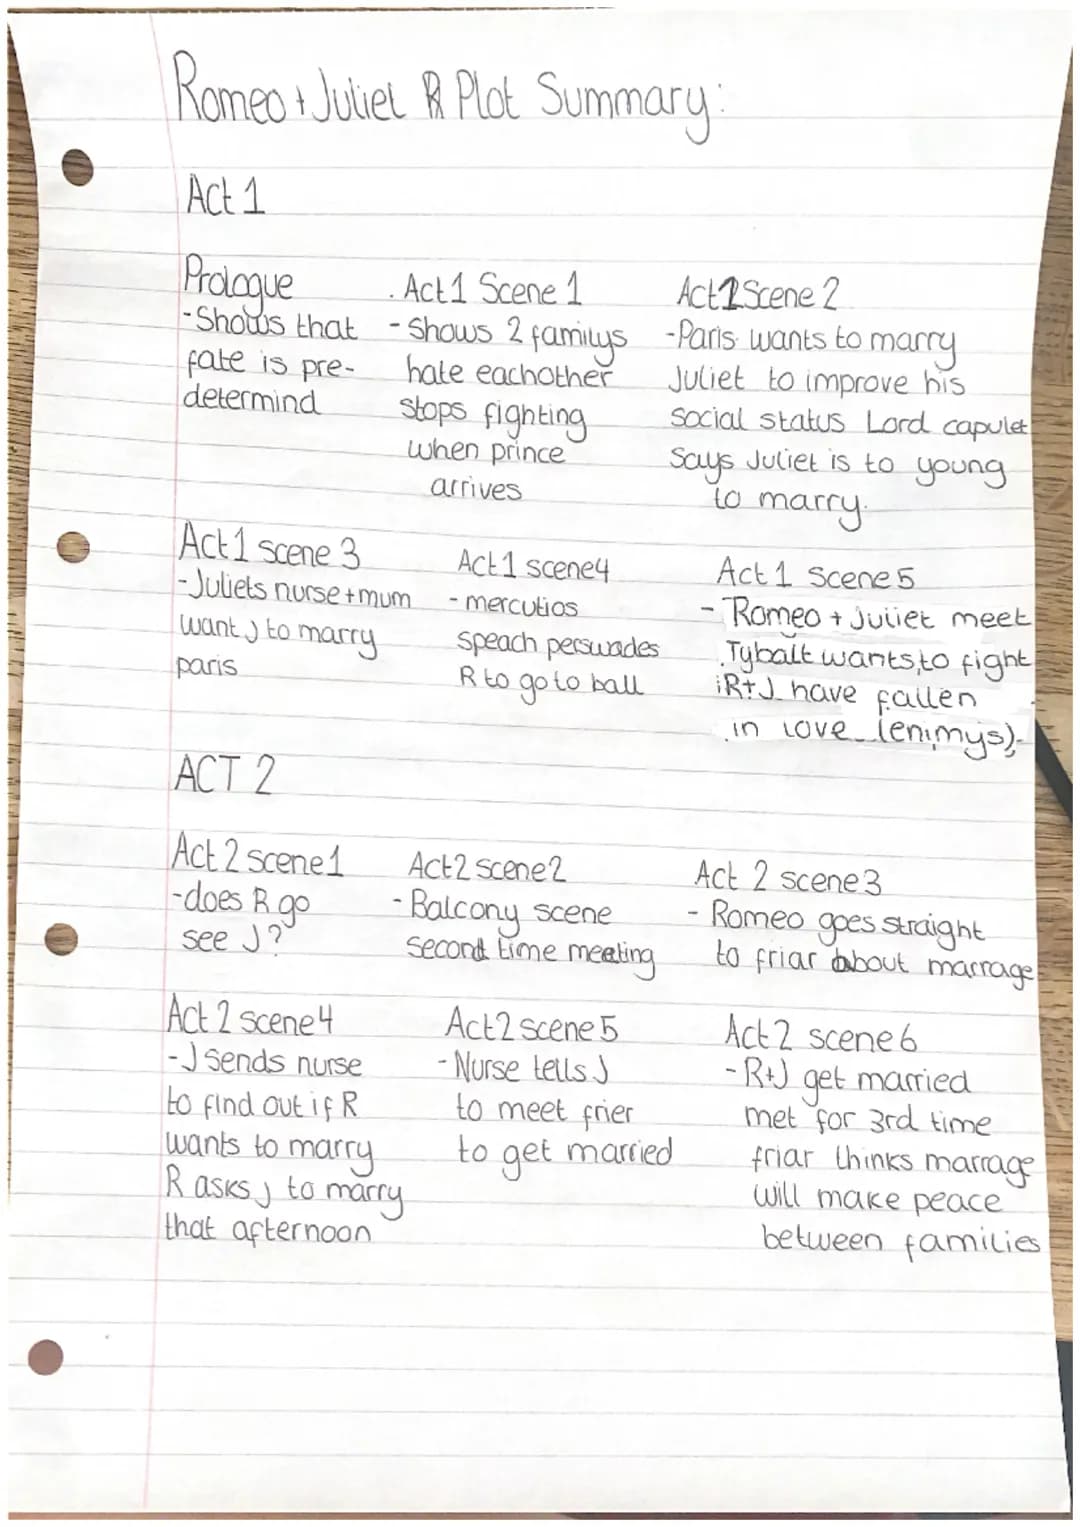 Romeo + Juliet R Plot Summary:
Act 1
Prologue
- Shows that
fate is pre-
determind
Act 1 Scene 1
- Shows 2 familys
hate eachother
stops fighting
when prince
arrives
Act 1 Scene 2
- Paris wants to marry
Juliet to improve his
social status Lord capulet
says Juliet is to young
to marry.
Act 1 scene 3
- Juliets nurse + mum
want J to marry
paris
Act 1 scene 4
- mercutios
speach perswades
R to go to ball
Act 1 Scene 5
- Romeo + Juliet meet
Tybalt wants to fight
R+J have fallen
in love (enimys)
ACT 2
Act 2 scene 1
- does R go
see J?
Act 2 scene 2
- Balcony scene
second time meeting
Act 2 scene 3
- Romeo goes straight
to friar about marrage
Act 2 scene 4
- J sends nurse
to find out if R
wants to marry
R asks J to marry
that afternoon
Act 2 scene 5
- Nurse tells J
to meet frier
to get married
Act 2 scene 6
- R+J get married
met for 3rd time
friar thinks marrage
will make peace
between families